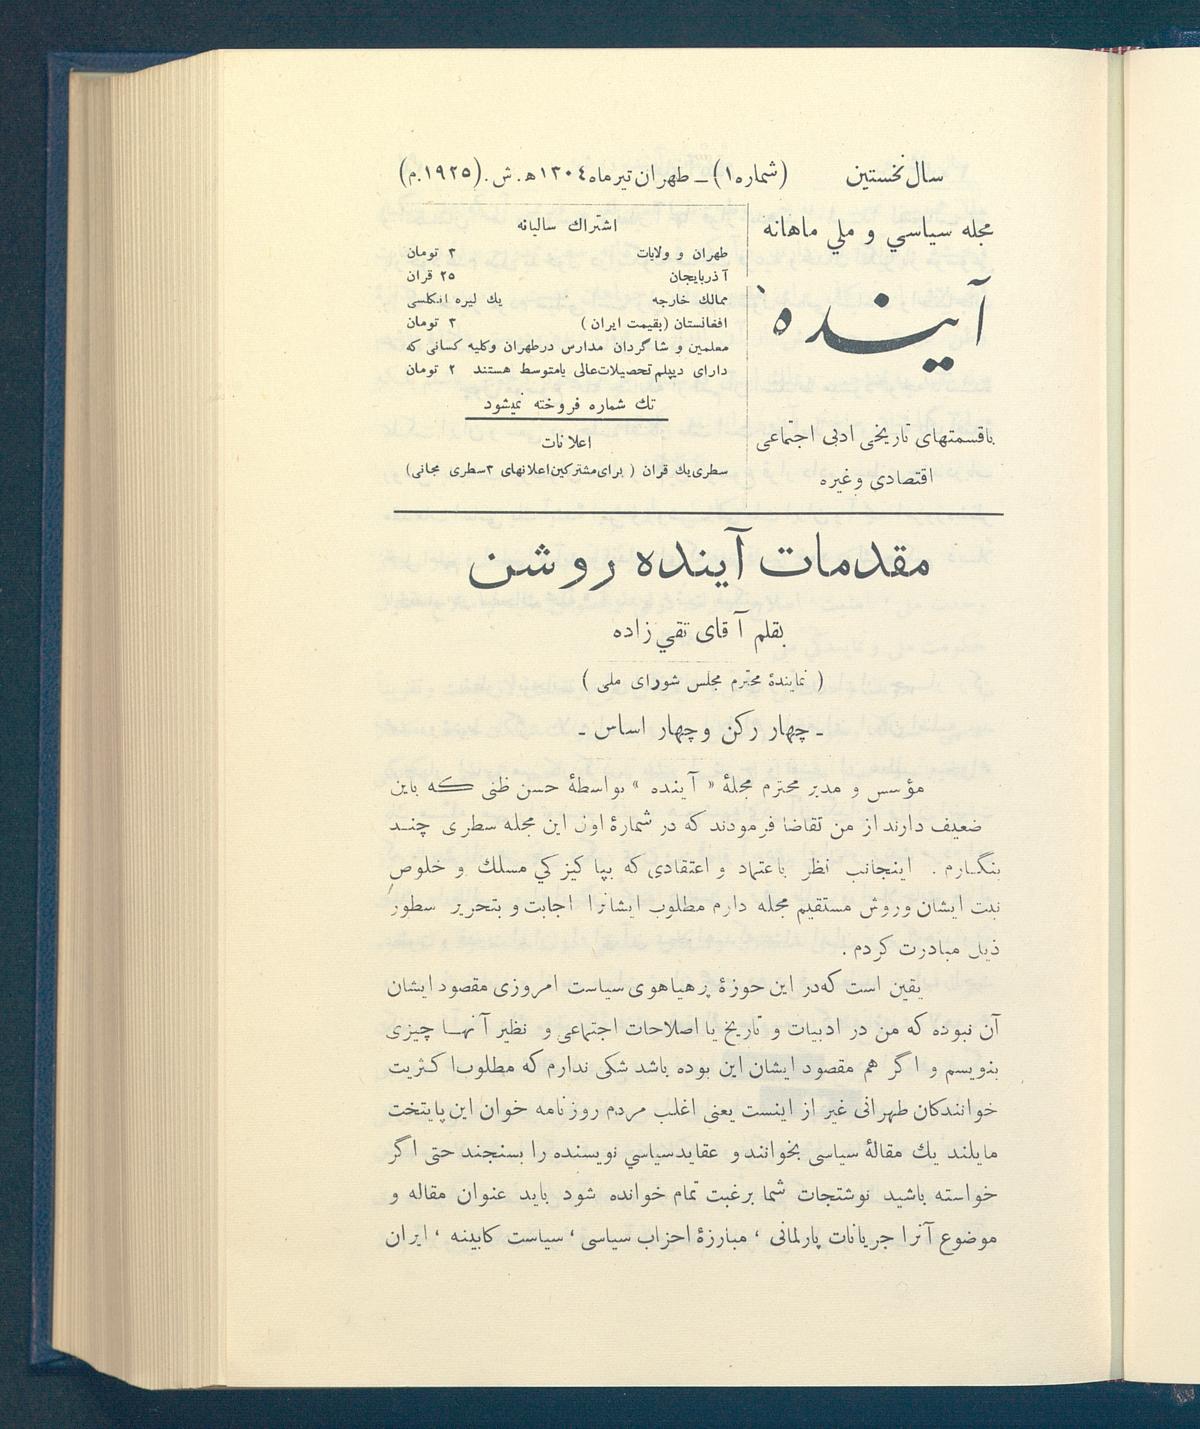 سال نخستین (شماره ۱) ـ طهران تیر ماه ۱۳۰۴ ه‍. ش. (۱۹۲۵ م.)
مجله سیاسي و ملي ماهانه
آینده
باقسمتهای تاریخی ادبی اجتماعی
اقتصادی وغیره
اشتراك سالیانه
طهران و ولایات ۳ تومان
آذربایجان ۲۵ قران
ممالك خارجه یك لیره انگلسی
افغانستان (بقیمت ایران) ۳ تومان
معلمین و شاگردان مدارس درطهران وکلیه کسانی که
دارای دیپلم تحصیلات‌عالی یامتوسط هستند ۲ تومان
تك شماره فروخته نمیشود
اعلانات
سطری‌یك قران ( برای‌مشترکین‌اعلانهای ۳سطری مجانی)
مقدمات آینده روشن
بقلم آقای تقي زاده
( نمایندهٔ محترم مجلس شورای ملی )
ـ چهار رکن وچهار اساس ـ
مؤسس و مدیر محترم مجلهٔ « آینده » بواسطهٔ حسن ظنی که باین
ضعیف دارند از من تقاضا فرمودند که در شمارهٔ اول این مجله سطری چند
بنگارم . اینجانب نظر باعتماد و اعتقادی که بپاکیزکي مسلك و خلوص
نیت ایشان وروش مستقیم مجله دارم مطلوب ایشانرا اجابت و بتحریر سطور
ذیل مبادرت کردم .
یقین است که‌در این حوزهٔ پرهیاهوی سیاست امروزی مقصود ایشان
آن نبوده که من در ادبیات و تاریخ یا اصلاحات اجتماعی و نظیر آنها چیزی
بنویسم و اگر هم مقصود ایشان این بوده باشد شکی ندارم که مطلوب‌اکثریت
خوانندکان طهرانی غیر از اینست یعنی اغلب مردم روزنامه خوان این پایتخت
مایلند یك مقالهٔ سیاسی بخوانند و عقایدسیاسي نویسنده را بسنجند حتی اگر
خواسته باشید نوشتجات شما برغبت تمام خوانده شود باید عنوان مقاله و
موضوع آنرا جریانات پارلمانی ، مبارزهٔ احزاب سیاسی ، سیاست کابینه ، ایران